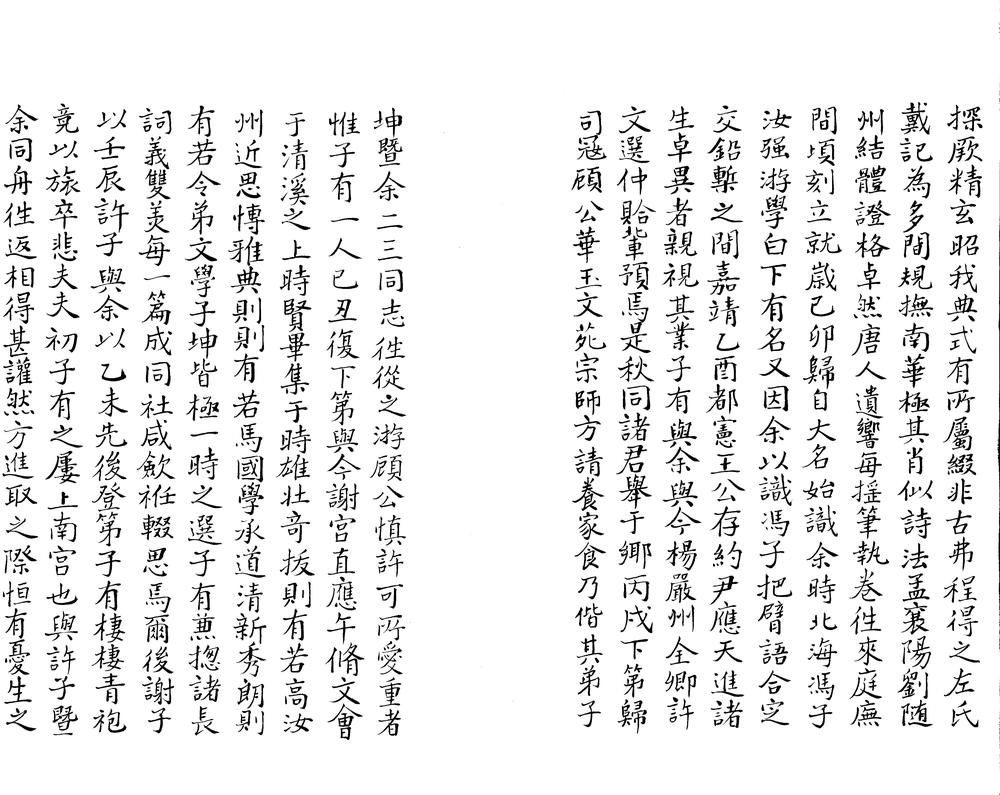 探厥精玄昭我典式有所屬綴非古弗程得之左氏
戴記為多間規撫南華極其肖似詩法孟襄陽劉随
州結體證格卓然唐人遺響每揺筆執卷徃來庭廡
間頃刻立就歲己卯歸自大名始識余時北海馮子
汝强游學白下有名又因余以識馮子把臂語合定
交鉛槧之間嘉靖乙酉都憲王公存約尹應天進諸
生卓異者親視其業子有與余與今楊嚴州全卿許
文選仲貽軰預焉是秋同諸君舉于郷丙戌下第歸
司冦顧公華玉文苑宗師方請養家食乃偕其弟子
坤暨余二三同志徃從之游顧公慎許可所愛重者
惟子有一人已丑復下第與今謝宫直應午脩文會
于清溪之上時賢畢集于時雄壮竒抜則有若高汝
州近思愽雅典則則有若馬國學承道清新秀朗則
有若令弟文學子坤皆極一時之選子有兼揔諸長
詞義雙美每一篇成同社咸歛袵輟思焉爾後謝子
以壬辰許子與余以乙未先後登第子有棲棲青袍
竟以旅卒悲夫夫初子有之屢上南宫也與許子暨
余同舟徃返相得甚讙然方進取之際恒有憂生之